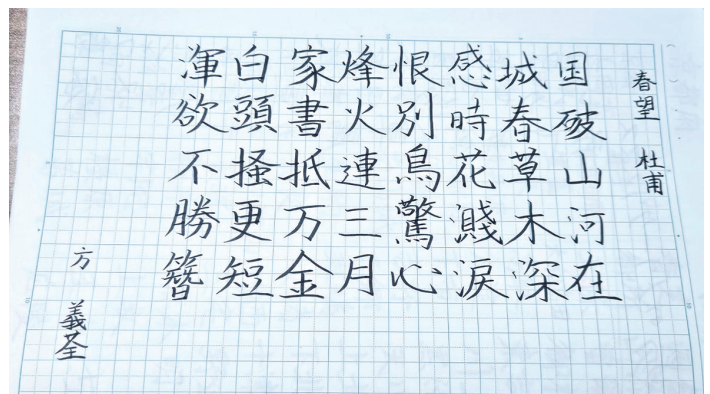 春望 杜甫
国破山河在
城春草木深
感時花濺涙
恨別鳥驚心
烽火連三月
家書抵万金
白頭搔更短
渾欲不勝簪
方 義荃